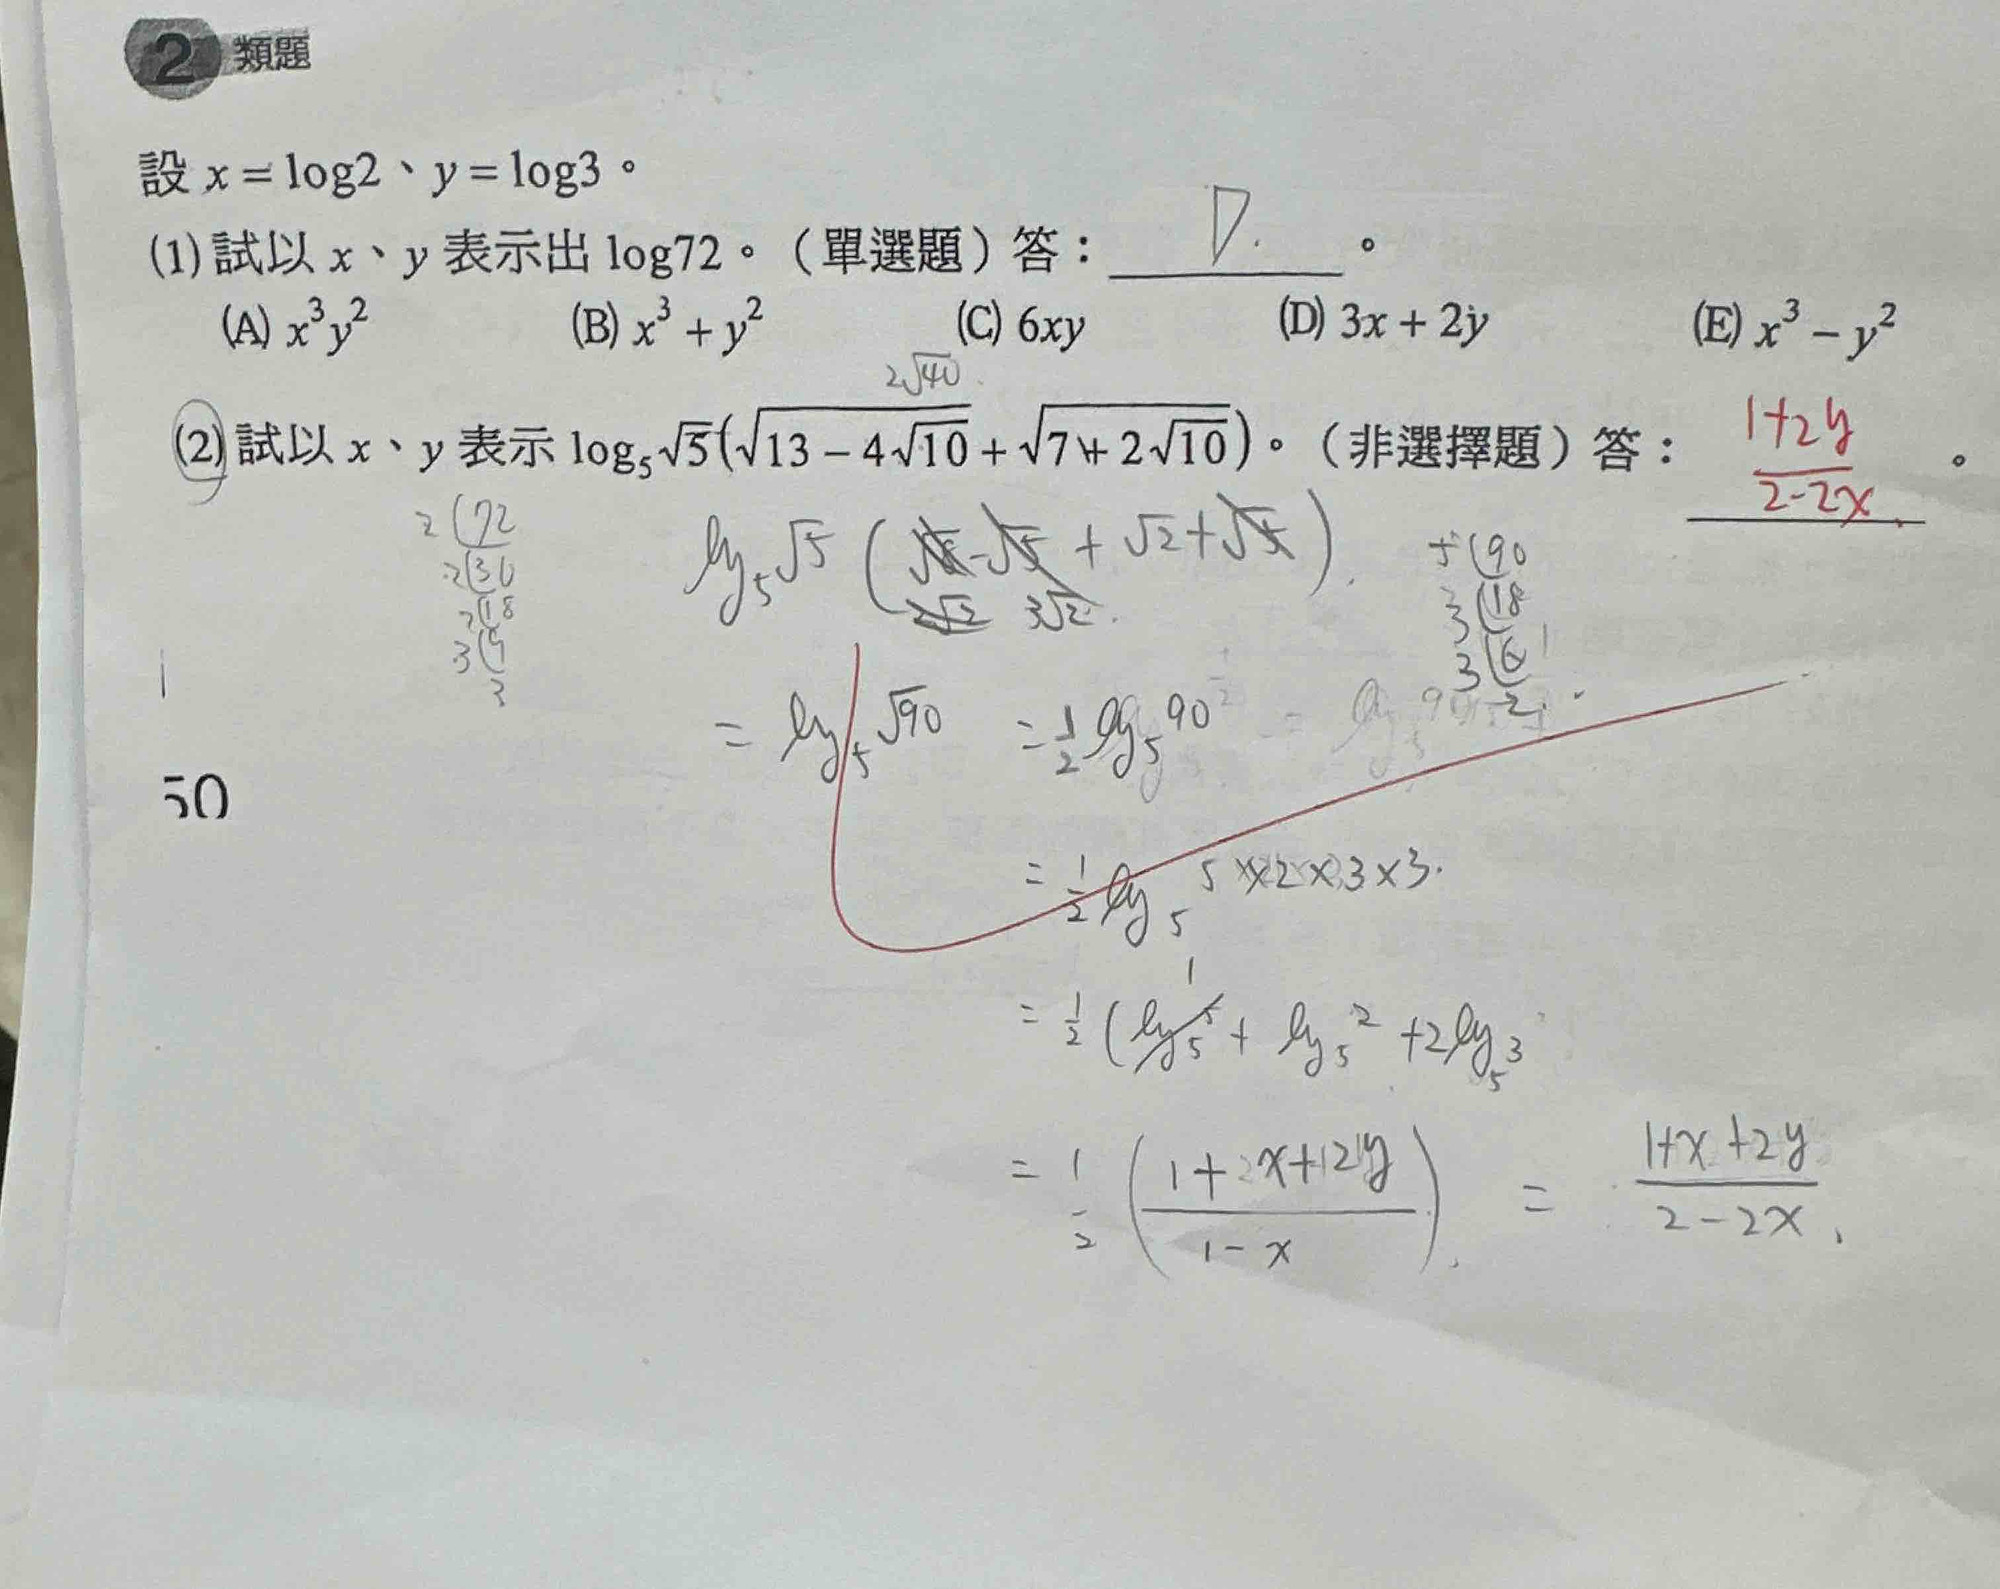 2 類題
設 x = log2、y = log3。
(1) 試以 x、y 表示出 log72。（單選題）答： D. 。
(A) x³y² (B) x³ + y² (C) 6xy (D) 3x + 2y (E) x³ − y²
2√40
(2) 試以 x、y 表示 log₅√5(√(13 − 4√10) + √(7 + 2√10))。（非選擇題）答： (1+2y)/(2-2x) 。
2 72
2 36
2 18
3 9
3
log₅√5 ( √8 - √5 + √2 + √5 )
2√2 3√2
5 90
3 18
3 6
2
= log₅√90 = 1/2 log₅90
50
= 1/2 log₅ 5×2×3×3
= 1/2 (log₅5 + log₅2 + 2log₅3
1
= 1/2 ( (1+x+2y)/(1-x) ) = (1+x+2y)/(2-2x)